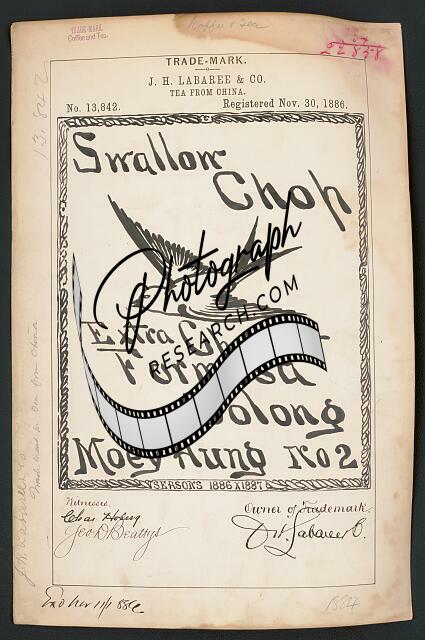 TRADE-MARK.
Coffee and Tea.
Coffee & Tea
TRADE-MARK.
J. H. LABAREE & CO.
TEA FROM CHINA.
No. 13,842.
Registered Nov. 30, 1886.
13.842
Swallow
Chop
Photograph
RESEARCH.COM
Extra
Formosa
Oolong
Moey Hung No 2
SEASONS 1886 & 1887
Witnesses.
Owner of Trademark
Geo D Beattys
J. H. Labaree & Co.
Trade mark for Tea from China